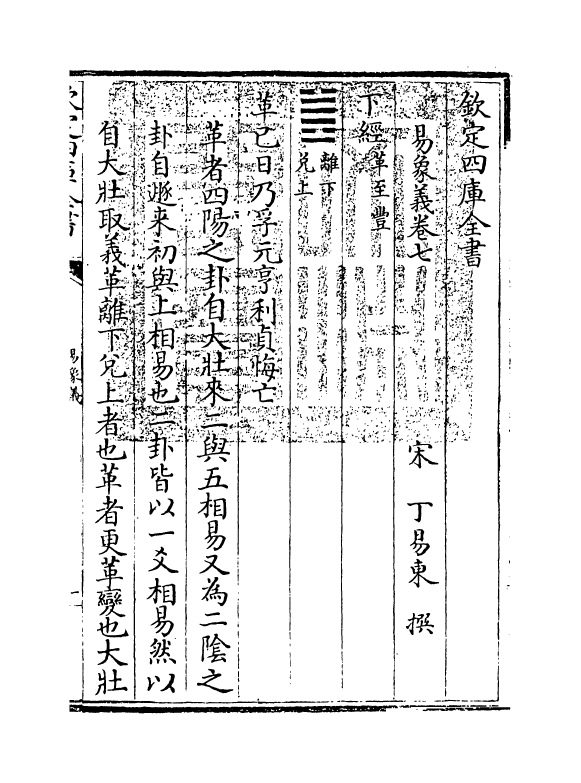 欽定四庫全書
易象義卷七
宋 丁易東 撰
下經革至豐
離下
兌上
革已日乃孚元亨利貞悔亡
革者四陽之卦自大壯來二與五相易又為二陰之
卦自遯來初與上相易也二卦皆以一爻相易然以
自大壯取義革離下兌上者也革者更革變也大壯
欽定四庫全書
易象義
一